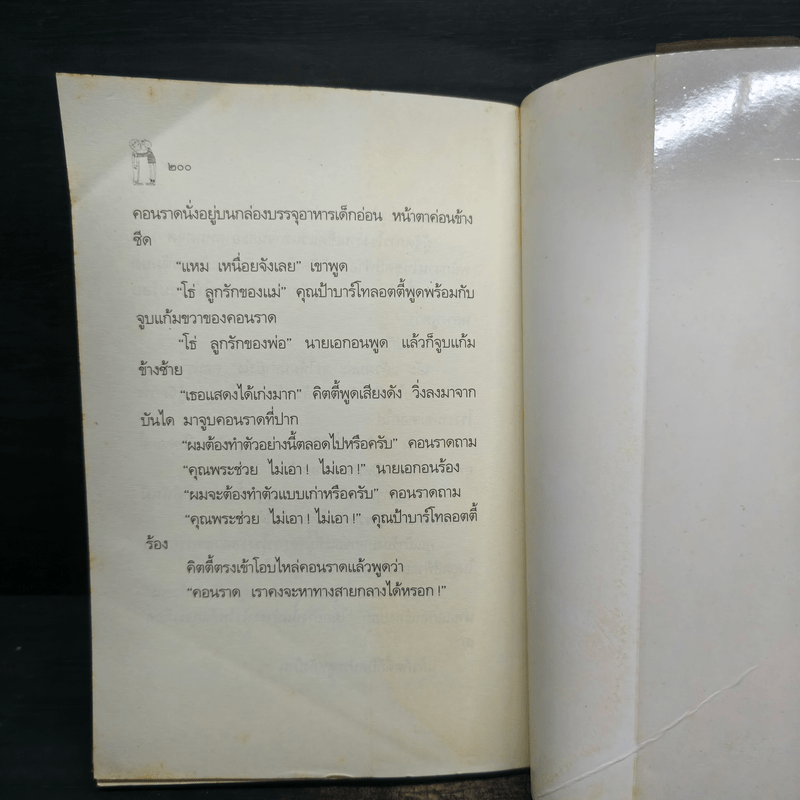 ๒๐๐
คอนราดนั่งอยู่บนกล่องบรรจุอาหารเด็กอ่อน หน้าตาค่อนข้าง
ซีด
“แหม เหนื่อยจังเลย” เขาพูด
“โธ่ ลูกรักของแม่” คุณป้าบาร์โทลอตตี้พูดพร้อมกับ
จูบแก้มขวาของคอนราด
“โธ่ ลูกรักของพ่อ” นายเอกอนพูด แล้วก็จูบแก้ม
ข้างซ้าย
“เธอแสดงได้เก่งมาก” คิตตี้พูดเสียงดัง วิ่งลงมาจาก
บันได มาจูบคอนราดที่ปาก
“ผมต้องทำตัวอย่างนี้ตลอดไปหรือครับ” คอนราดถาม
“คุณพระช่วย ไม่เอา ! ไม่เอา !” นายเอกอนร้อง
“ผมจะต้องทำตัวแบบเก่าหรือครับ” คอนราดถาม
“คุณพระช่วย ไม่เอา ! ไม่เอา !” คุณป้าบาร์โทลอตตี้
ร้อง
คิตตี้ตรงเข้าโอบไหล่คอนราดแล้วพูดว่า
“คอนราด เราคงจะหาทางสายกลางได้หรอก !”